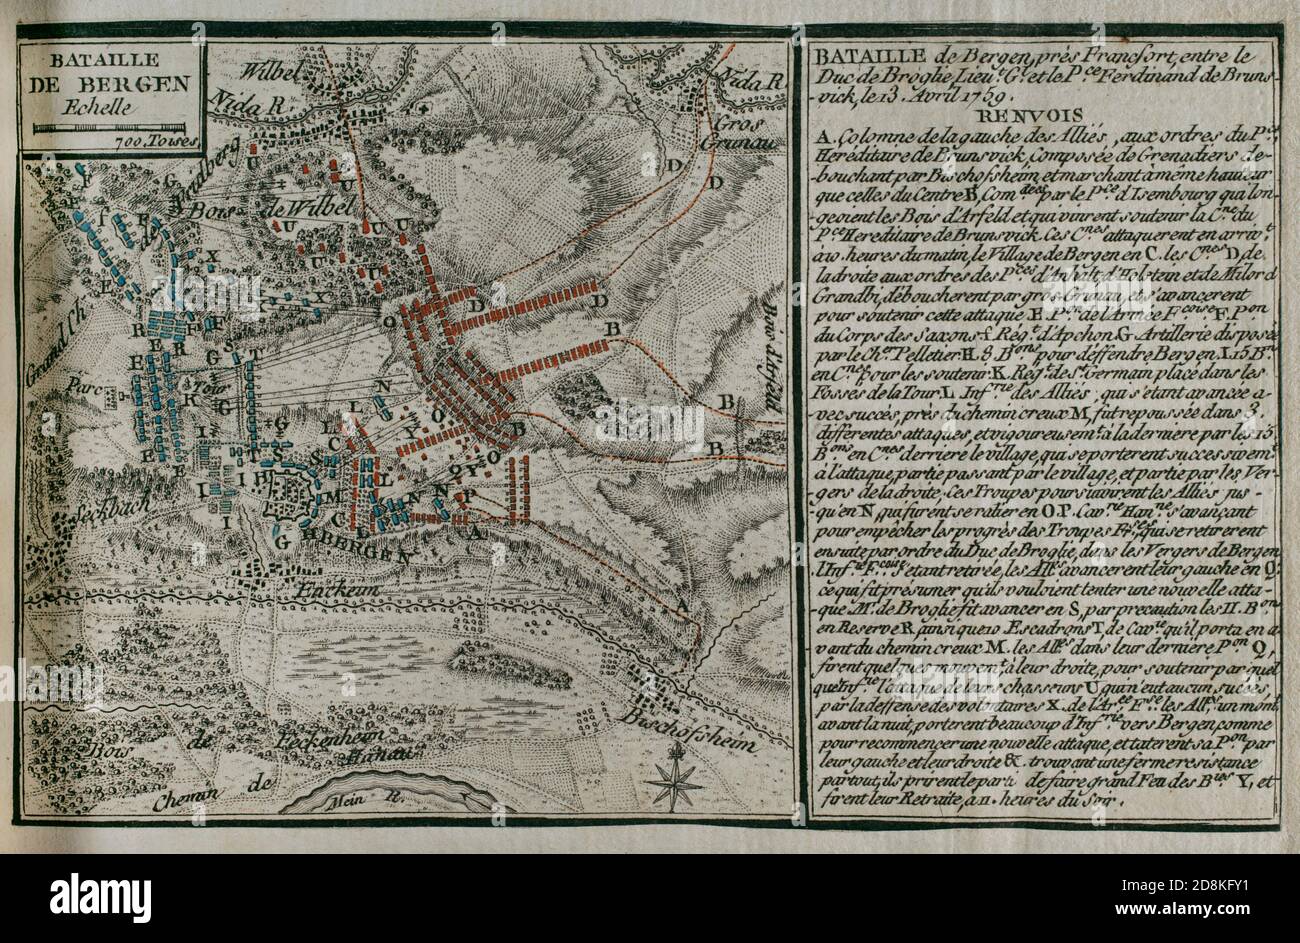 BATAILLE
DE BERGEN
Echelle
700. Toises
Wilbel
Nida R.
Nida R.
Gros
Grunau
Bois de Wilbel
Bois d'Arfeld
Parc
Tour
Seckbach
BERGEN
Enckeim
Bischofsheim
Bois de Feckenheim
Chemin de Hanau
Mein R.
BATAILLE de Bergen, près Francfort, entre le
Duc de Broglie Lieut. Gl. et le Pce Ferdinand de Bruns-
vick, le 13. Avril 1759.
RENVOIS
A. Colomne de la gauche des Alliés, aux ordres du Pce
Hereditaire de Brunsvick, Composée de Grenadiers de-
bouchant par Bischofsheim et marchant à même hauteur
que celles du Centre B, Comdées par le Pce d'Isembourg qui lon-
geoient les Bois d'Arfeld et qui vinrent soutenir la Cne du
Pce Hereditaire de Brunsvick. Ces Cnes attaquerent en arrivt
à 10. heures du matin, le Village de Bergen en C. les Cnes D, de
la droite aux ordres des Pces d'Anhalt, d'Holstein et de Milord
Grandbi, déboucherent par gros Grunau, et s'avancerent
pour soutenir cette attaque. E Pon de l'Armée Fcoise F. Pon
du Corps des Saxons. f. Régt d'Apchon. G. Artillerie disposée
par le Cher Pelletier. H. 8. Bons pour deffendre Bergen. I. 15. Bns
en Cnes pour les soutenir. K. Régt de St Germain placé dans les
Fosses de la Tour. L. Infrie des Alliés, qui s'etant avancée a-
vec succés, près du chemin creux M, fut repoussée dans 3.
differentes attaques, et vigoureusemt à la derniere par les 15
Bons en Cnes derriere le village, qui se porterent successivemt
à l'attaque, partie passant par le village, et partie par les Ver-
gers de la droite, Ces Troupes poursuivirent les Alliés jus-
qu'en N, qui furent se ralier en O. P. Cavrie Hanne s'avançant
pour empêcher les progrès des Troupes Fses qui se retirerent
ensuite par ordre du Duc de Broglie, dans les Vergers de Bergen
l'Infie Fcoise s'etant retirée, les Allés avancerent leur gauche en Q:
ce qui fit présumer qu'ils vouloient tenter une nouvelle atta-
que. Mr. de Broglie fit avancer en S, par precaution les II. Bons
en Reserve R, ainsi que 10 Escadrons T, de Cavrie qu'il porta en a-
vant du chemin creux M. les Allés dans leur derniere Pon Q,
firent quelques mouvemts à leur droite, pour soutenir par quel
que Infrie l'attaque de leurs chasseurs U, qui n'eut aucun succès,
par la deffense des volontaires X, de l'Arée Fse. les Allés, un momt
avant la nuit, porterent beaucoup d'Infrie vers Bergen comme
pour recommencer une nouvelle attaque, et taterent sa Pon par
leur gauche et leur droite &. trouvant une ferme resistance
partout, ils prirent le parti de faire grand Feu des Btes Y, et
firent leur Retraite, à 11. heures du Soir.
alamy
Image ID: 2D8KFY1
www.alamy.com